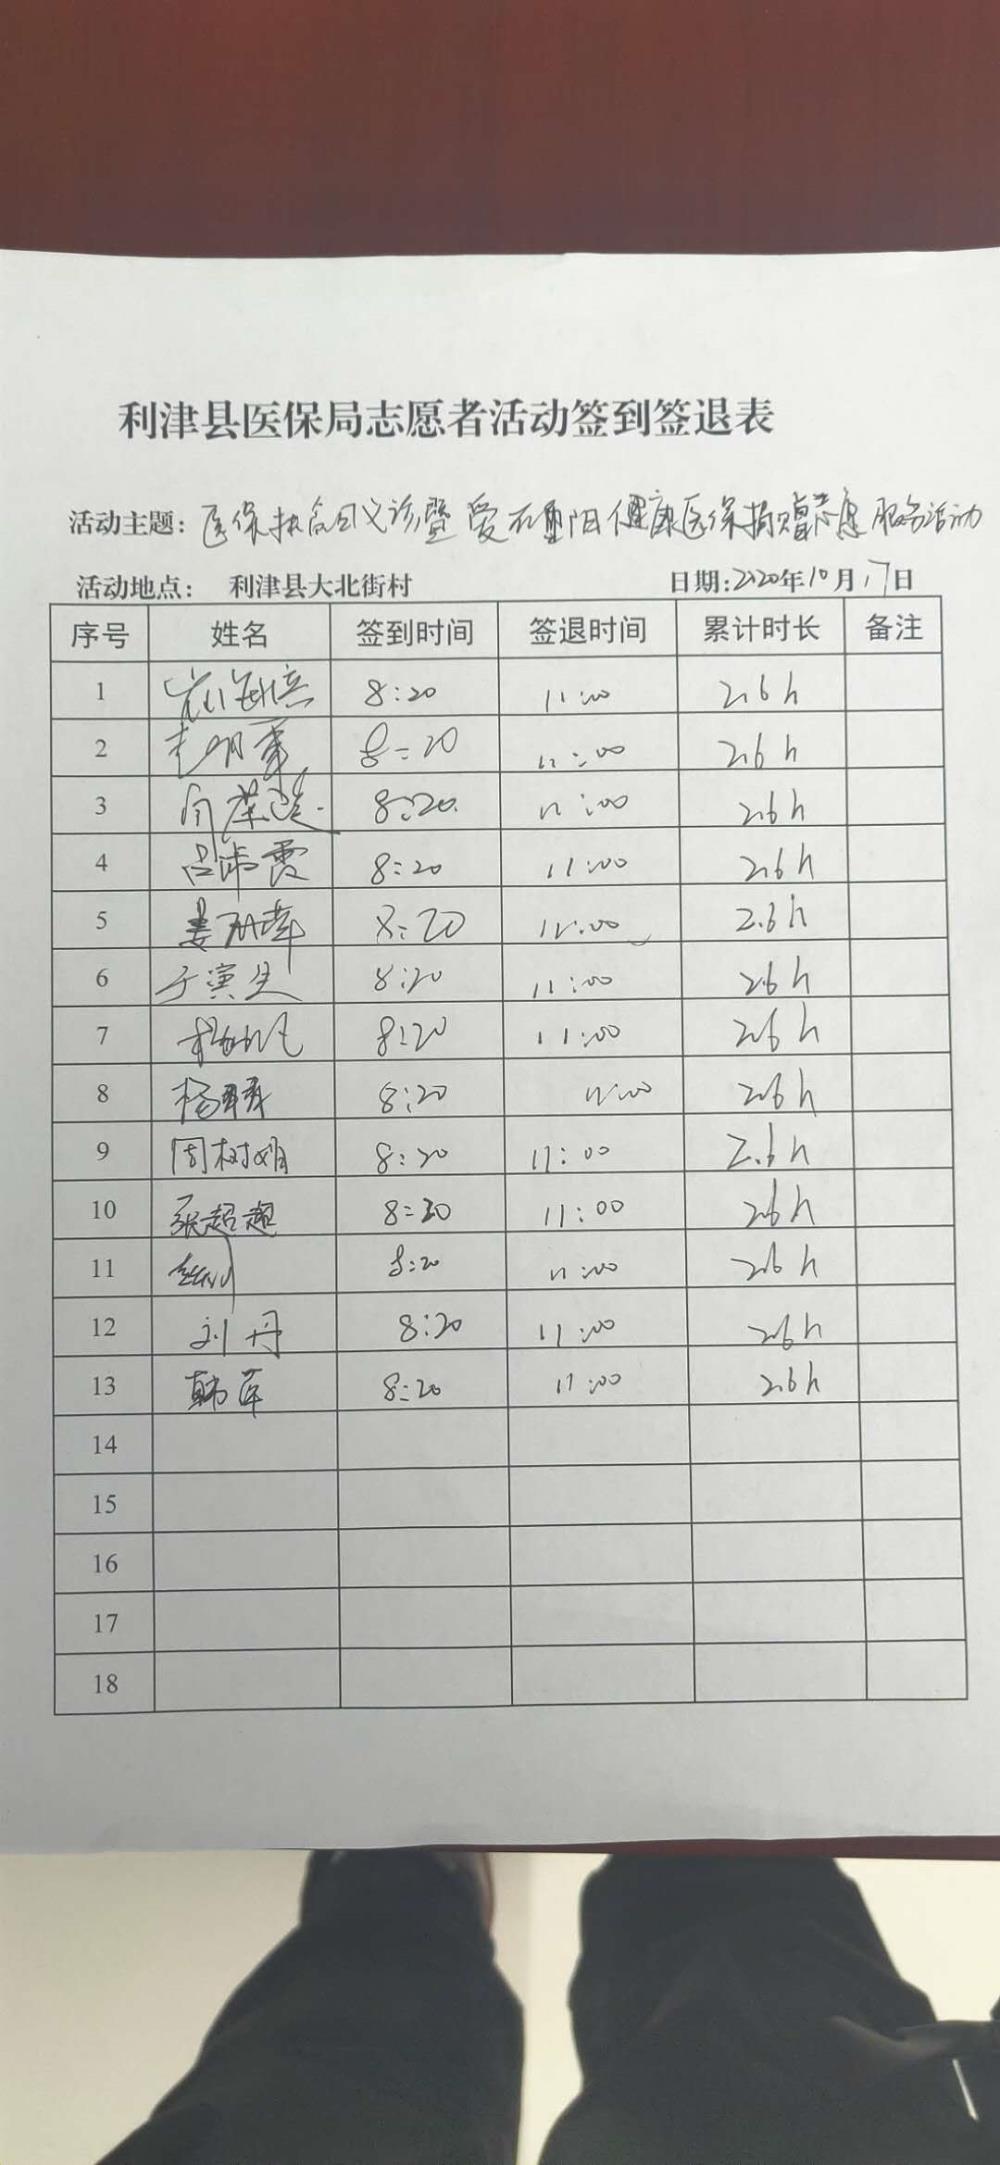 利津县医保局志愿者活动签到签退表
活动主题: 医保扶贫 义诊暨爱在重阳 健康医保捐赠 服务活动
活动地点: 利津县大北街村 日期:2020年10月17日
序号 姓名 签到时间 签退时间 累计时长 备注
1 8:20 11:00 2.6h
2 8:20 11:00 2.6h
3 8:20 11:00 2.6h
4 吕沛霞 8:20 11:00 2.6h
5 8:20 11:00 2.6h
6 于寅生 8:20 11:00 2.6h
7 8:20 11:00 2.6h
8 8:20 11:00 2.6h
9 周树娟 8:20 11:00 2.6h
10 张超超 8:20 11:00 2.6h
11 8:20 11:00 2.6h
12 刘丹 8:20 11:00 2.6h
13 8:20 11:00 2.6h
14
15
16
17
18